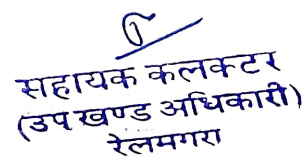 सहायक कलक्टर
(उप खण्ड अधिकारी)
रेलमगरा